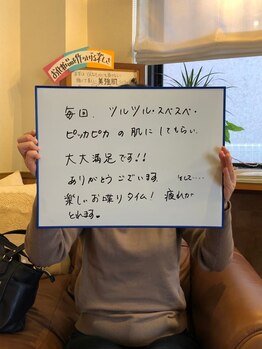 毎回、ツルツル・スベスベ・
ピッカピカの肌にしてもらい、
大大満足です!!
ありがとうございます そして....
楽しいお喋りタイム! 疲れが
とれます。